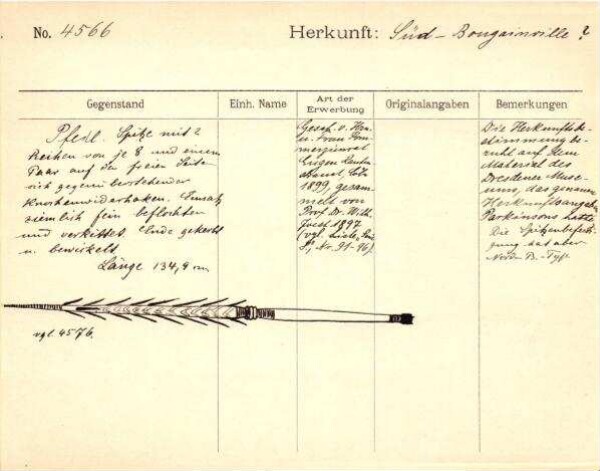 No. 4566
Herkunft: Süd-Bougainville ?
Gegenstand
Einh. Name
Art der Erwerbung
Originalangaben
Bemerkungen
Pfeil. Spitze mit 2
Reihen von je 8 und einem
Paar auf der freien Seite
sich gegenüberstehender
Knochenwiderhaken. Einsatz
ziemlich fein beflochten
und verkittet. Ende gekerbt
u. bewickelt.
Länge 134,9 cm
Gesch. v. Hrn.
u. Frau Kom-
merzienrat
Eugen
1899, gesam-
melt von
Prof. Dr. Wilh.
Joest 1897
(vgl.
Nr. 91-96).
Die Herkunftsbe-
stimmung be-
ruht auf dem
Material des
Dresdener Muse-
ums, das genaue
Herkunftsangab.
Parkinsons hatte.
Die Spitzenbefesti-
gung hat aber
Nord-B.-Typ.
vgl. 4576.